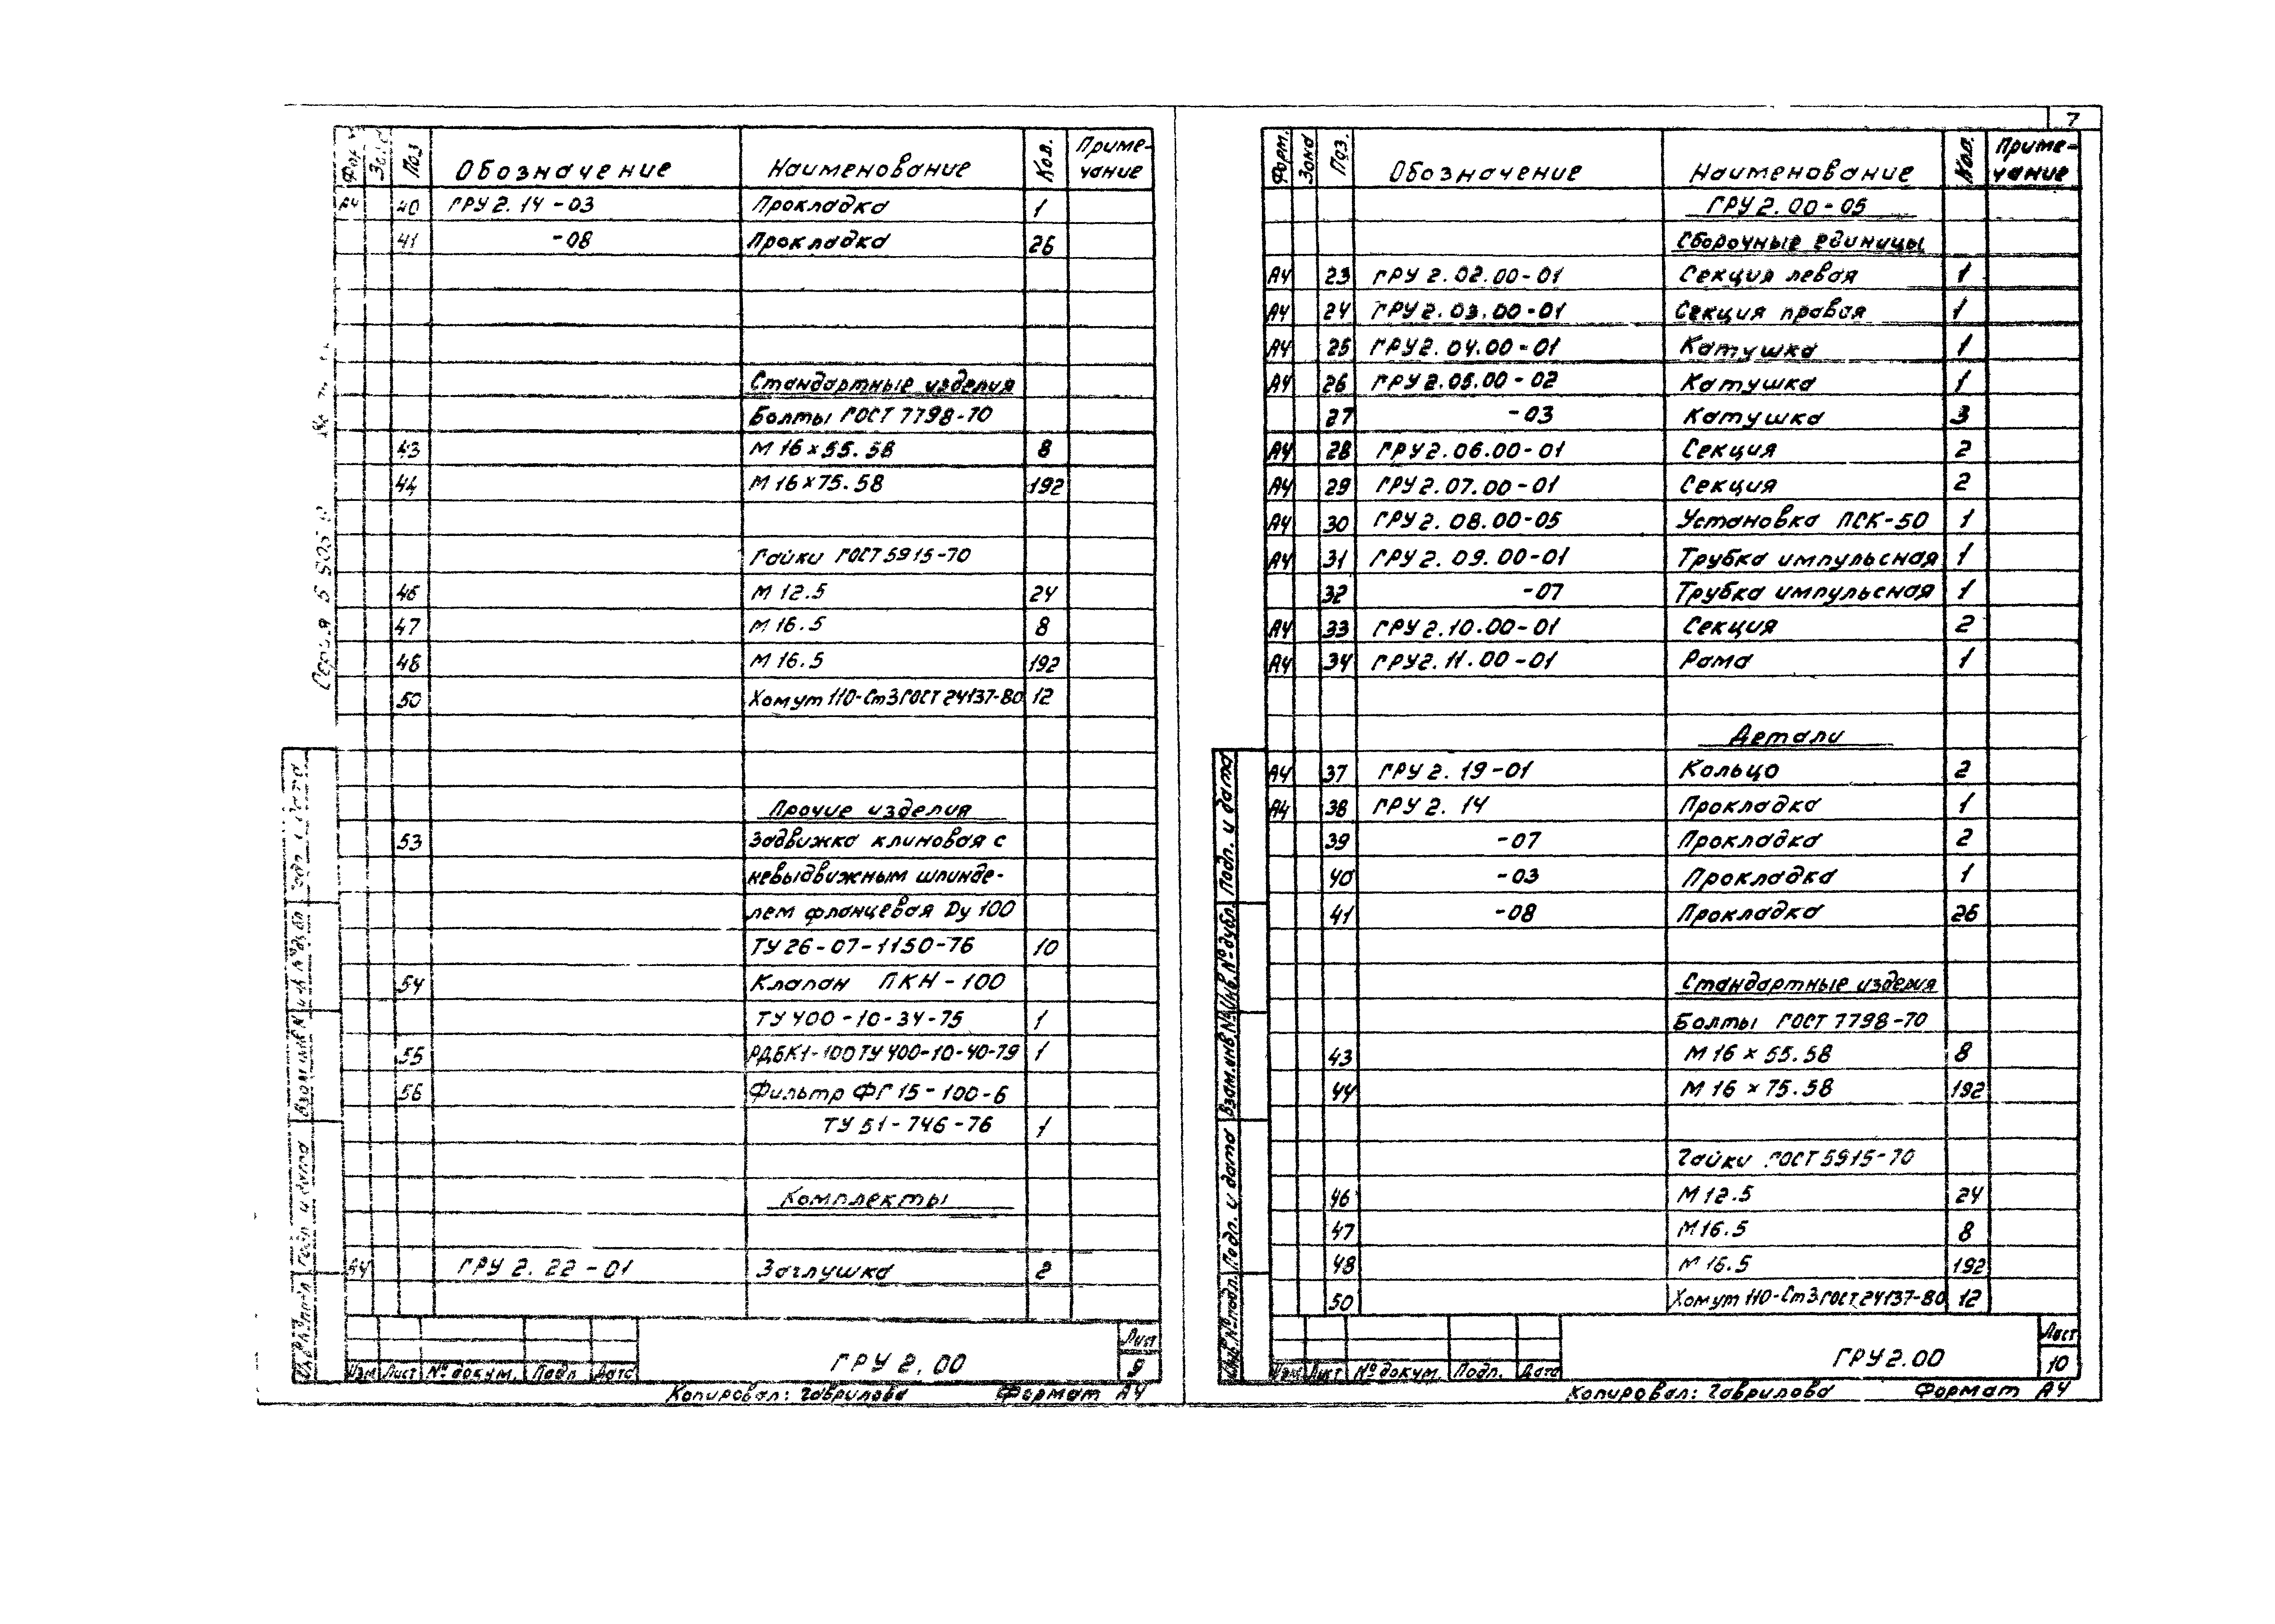 7
Форм. Зона Поз Обозначение Наименование Кол. Приме-
чание
А4 40 ГРУ 2. 14 - 03 Прокладка 1
41 - 08 Прокладка 26
Стандартные изделия
Болты ГОСТ 7798-70
43 М 16 х 55. 58 8
44 М 16 х 75. 58 192
Гайки ГОСТ 5915-70
46 М 12.5 24
47 М 16.5 8
48 М 16.5 192
50 Хомут 110-Ст3 ГОСТ 24137-80 12
Прочие изделия
53 Задвижка клиновая с
невыдвижным шпинде-
лем фланцевая Dу 100
ТУ 26-07-1150-76 10
54 Клапан ПКН-100
ТУ 400-10-34-75 1
55 РДБК1-100 ТУ 400-10-40-79 1
56 Фильтр ФГ 15-100-6
ТУ 51-746-76 1
Комплекты
А4 ГРУ 2. 22 - 01 Заглушка 2
Изм Лист № докум. Подп Дата
ГРУ 2.00
Лист
9
Копировал: Гаврилова Формат А4
Серия 5 905
Подп. и дата
Взам инв №
Подп и дата
Инв № подл
Форм. Зона Поз. Обозначение Наименование Кол. Приме-
чание
ГРУ 2. 00 - 05
Сборочные единицы
А4 23 ГРУ 2. 02. 00 - 01 Секция левая 1
А4 24 ГРУ 2. 03. 00 - 01 Секция правая 1
А4 25 ГРУ 2. 04. 00 - 01 Катушка 1
А4 26 ГРУ 2. 05. 00 - 02 Катушка 1
27 - 03 Катушка 3
А4 28 ГРУ 2. 06. 00 - 01 Секция 2
А4 29 ГРУ 2. 07. 00 - 01 Секция 2
А4 30 ГРУ 2. 08. 00-05 Установка ПСК-50 1
А4 31 ГРУ 2. 09. 00-01 Трубка импульсная 1
32 - 07 Трубка импульсная 1
А4 33 ГРУ 2. 10. 00-01 Секция 2
А4 34 ГРУ 2. 11. 00 - 01 Рама 1
Детали
А4 37 ГРУ 2. 19 - 01 Кольцо 2
А4 38 ГРУ 2. 14 Прокладка 1
39 - 07 Прокладка 2
40 - 03 Прокладка 1
41 - 08 Прокладка 26
Стандартные изделия
Болты ГОСТ 7798-70
43 М 16 х 55. 58 8
44 М 16 х 75. 58 192
Гайки ГОСТ 5915-70
46 М 12.5 24
47 М 16.5 8
48 М 16.5 192
50 Хомут 110-Ст3 ГОСТ 24137-80 12
Изм Лист № докум Подп. Дата
ГРУ 2.00
Лист
10
Копировал: Гаврилова Формат А4
Подп. и дата
Инв № дубл
Взам. инв. №
Подп. и дата
Инв № подл.